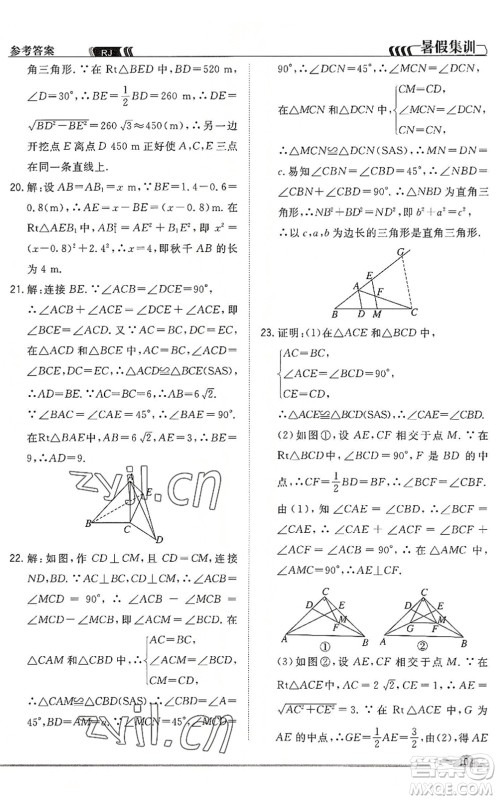 参考答案 RJ 暑假集训
角三角形.∵在 Rt△BED 中,BD=520 m,
∠D=30°,∴BE=1/2BD=260 m,∴DE=
√(BD²−BE²)=260√3≈450(m).∴另一边
开挖点 E 离点 D 450 m 正好使 A,C,E 三点
在同一条直线上.
20. 解:设 AB=AB₁=x m,∵BE=1.4-0.6=
0.8(m),∴AE=x-BE=(x-0.8)m.在
Rt△AEB₁ 中,AB₁²=AE²+B₁E²,∴x²=
(x-0.8)²+2.4²,∴x=4,即秋千 AB 的长
为 4 m.
21. 解:连接 BE.∵∠ACB=∠DCE=90°,
∴∠ACB+∠ACE=∠DCE+∠ACE,
∴∠BCE=∠ACD.又∵AC=BC,DC=EC,
在△ACD 和△BCE 中,AC=BC,∠ACD=
∠BCE,DC=EC,∴△ACD≌△BCE(SAS),
∴AD=BE.∵AC=BC=6,∴AB=6√2.
∵∠BAC=∠CAE=45°,∴∠BAE=90°.
在 Rt△BAE 中,AB=6√2,AE=3,∴BE=
9.∴AD=9.
A
E
B
C
D
22. 解:如图,作 CD⊥CM,且 CD=CM,连接
ND,BD.∵AC⊥BC,∴∠ACB=∠ACM+
∠MCB=90°,∵∠MCD=∠BCD+
∠MCB=90°,∴∠ACM=∠BCD,在
△CAM 和△CBD 中,{AC=BC,
∠ACM=∠BCD,
CM=CD,
∴△CAM≌△CBD(SAS),∴∠CBD=∠A=
45°,AM=BD,∵∠MCD=90°,∠MCN=
45°,∴∠DCN=45°,∴∠MCN=∠DCN.
在△MCN 和△DCN 中,{CM=CD,
∠MCN=∠DCN,
CN=CN,
∴△MCN≌△DCN(SAS),∴MN=DN=
c.易得∠ABC=45°,∴∠NBD=∠ABC+
∠CBD=90°.∴△NBD 为直角三角形,
∴以 a,b,c 为边长的三角形是直角三角形.
G
E
A
F
B
D
M
C
23. 证明:(1)在△ACE 和△BCD 中,
{AC=BC,
∠ACE=∠BCD=90°,
CE=CD,
∴△ACE≌△BCD(SAS),∴∠CAE=∠CBD.
(2)如图①,设 AE,CF 相交于点 M.∵在
Rt△BCD 中,点 F 是 BD 的中点,
∴CF=1/2BD=BF,∴∠BCF=∠CBF.
由(1),知∠CAE=∠CBD,∴∠BCF=
∠CAE,∴∠CAE+∠ACF=∠BCF+
∠ACF=∠BCA=90°,∴在△AMC 中,
∠AMC=90°,∴AE⊥CF.
C
D
E
M
F
A
B
①
C
D
E
M
G
F
A
B
②
(3)如图②,设 AE,CF 相交于点 M.
∵AC=2√2,CE=1,∴AE=
√(AC²+CE²)=3.在 Rt△ACE 中,G 为
AE 的中点,∴GE=1/2AE=3/2,同理
zyjl.cn